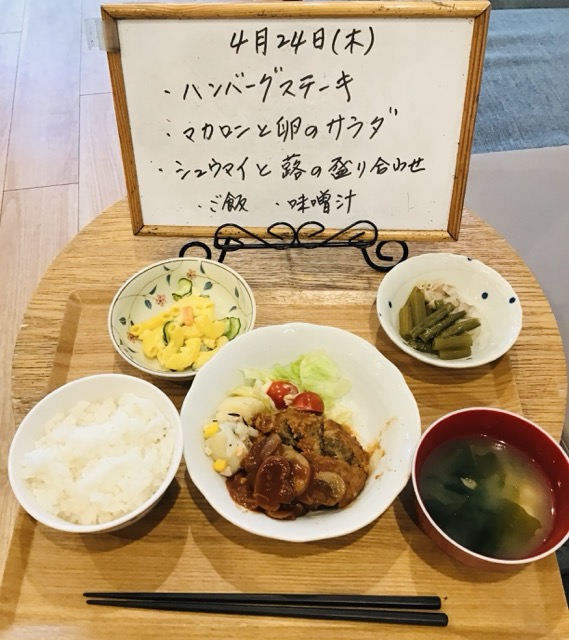 4月24日(木)
・ハンバーグステーキ
・マカロンと卵のサラダ
・シュウマイと蕗の盛り合わせ
・ご飯 ・味噌汁